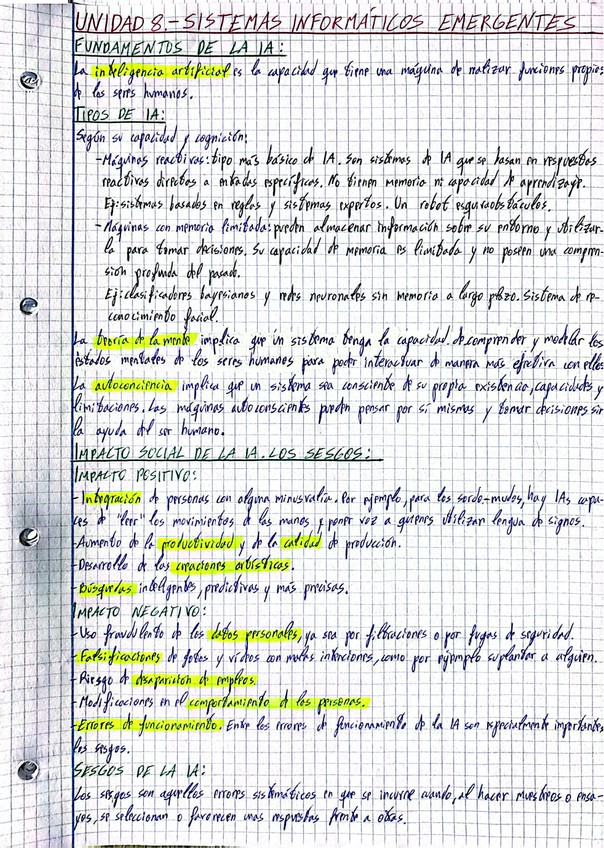 UNIDAD 8.-SISTEMAS INFORMÁTICOS EMERGENTES
FUNDAMENTOS DE LA IA:
La inteligencia artificial es la capacidad que tiene una máquina de realizar funciones propias
de los seres humanos.
TIPOS DE IA:
Según su capacidad y cognición:
-Máquinas reactivas: tipo más básico de IA. Son sistemas de IA que se basan en respuestas
reactivas directas a entradas específicas. No tienen memoria ni capacidad de aprendizaje.
Ej: sistemas basados en reglas y sistemas expertos. Un robot esquivaobstáculos.
-Máquinas con memoria limitada: pueden almacenar información sobre su entorno y utilizar-
la para tomar decisiones. Su capacidad de memoria es limitada y no poseen una compren-
sión profunda del pasado.
Ej: clasificadores bayesianos y redes neuronales sin memoria a largo plazo. Sistema de re-
conocimiento facial.
La teoría de la mente implica que un sistema tenga la capacidad de comprender y modelar los
estados mentales de los seres humanos para poder interactuar de manera más efectiva con ellos
La autoconciencia implica que un sistema sea consciente de su propia existencia, capacidades y
limitaciones. Las máquinas autoconscientes pueden pensar por sí mismas y tomar decisiones sin
la ayuda del ser humano.
IMPACTO SOCIAL DE LA IA. LOS SESGOS:
IMPACTO POSITIVO:
-Integración de personas con alguna minusvalía. Por ejemplo, para los sordo-mudos, hay IAs capa-
ces de "leer" los movimientos de las manos y poner voz a quienes utilizan lengua de signos.
-Aumento de la productividad y de la calidad de producción.
-Desarrollo de las creaciones artísticas.
-Búsquedas inteligentes, predictivas y más precisas.
IMPACTO NEGATIVO:
-Uso fraudulento de los datos personales, ya sea por filtraciones o por fugas de seguridad.
-Falsificaciones de fotos y vídeos con malas intenciones, como por ejemplo suplantar a alguien.
-Riesgo de desaparición de empleos.
-Modificaciones en el comportamiento de las personas.
-Errores de funcionamiento. Entre los errores de funcionamiento de la IA son especialmente importantes
los sesgos.
SESGOS DE LA IA:
Los sesgos son aquellos errores sistemáticos en que se incurre cuando, al hacer muestreos o ensa-
yos, se seleccionan o favorecen unas respuestas frente a otras.